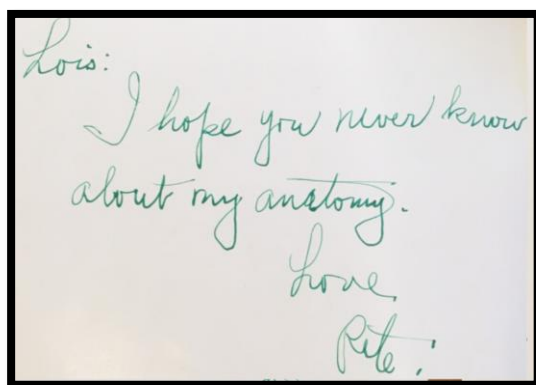 Lois:
I hope you never know
about my anatomy.
Love,
Rite!